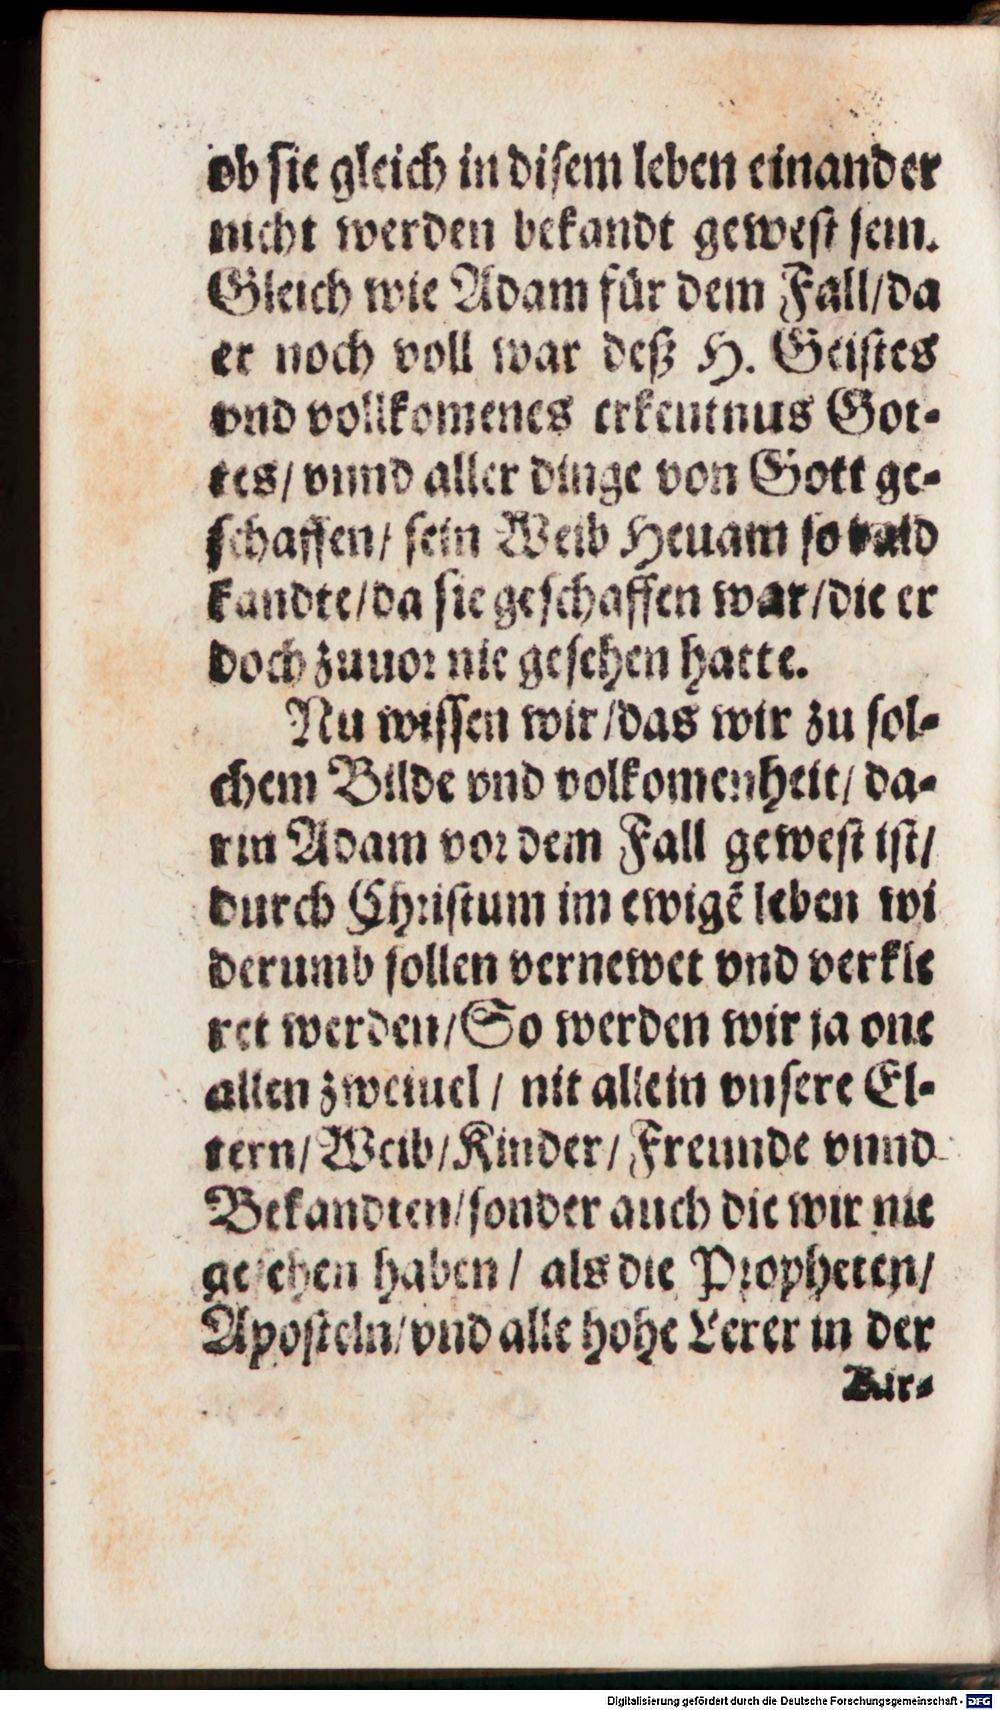 ob sie gleich in disem leben einander
nicht werden bekandt gewest sein.
Gleich wie Adam für dem Fall/da
er noch voll war deß H. Geistes
vnd vollkomenes erkentnus Got-
tes/ vnnd aller dinge von Gott ge-
schaffen/ sein Weib Heuam so bald
kandte/da sie geschaffen war/die er
doch zuuor nie gesehen hatte.
Nu wissen wir/das wir zu sol-
chem Bilde vnd volkomenheit/ da-
rin Adam vor dem Fall gewest ist/
durch Christum im ewigẽ leben wi
derumb sollen vernewet vnd verkle
ret werden/So werden wir ja one
allen zweiuel/ nit allein vnsere El-
tern/Weib/Kinder/Freunde vnnd
Bekandten/sonder auch die wir nie
gesehen haben/ als die Propheten/
Aposteln/vnd alle hohe Lerer in der
Kir-
Digitalisierung gefördert durch die Deutsche Forschungsgemeinschaft - DFG